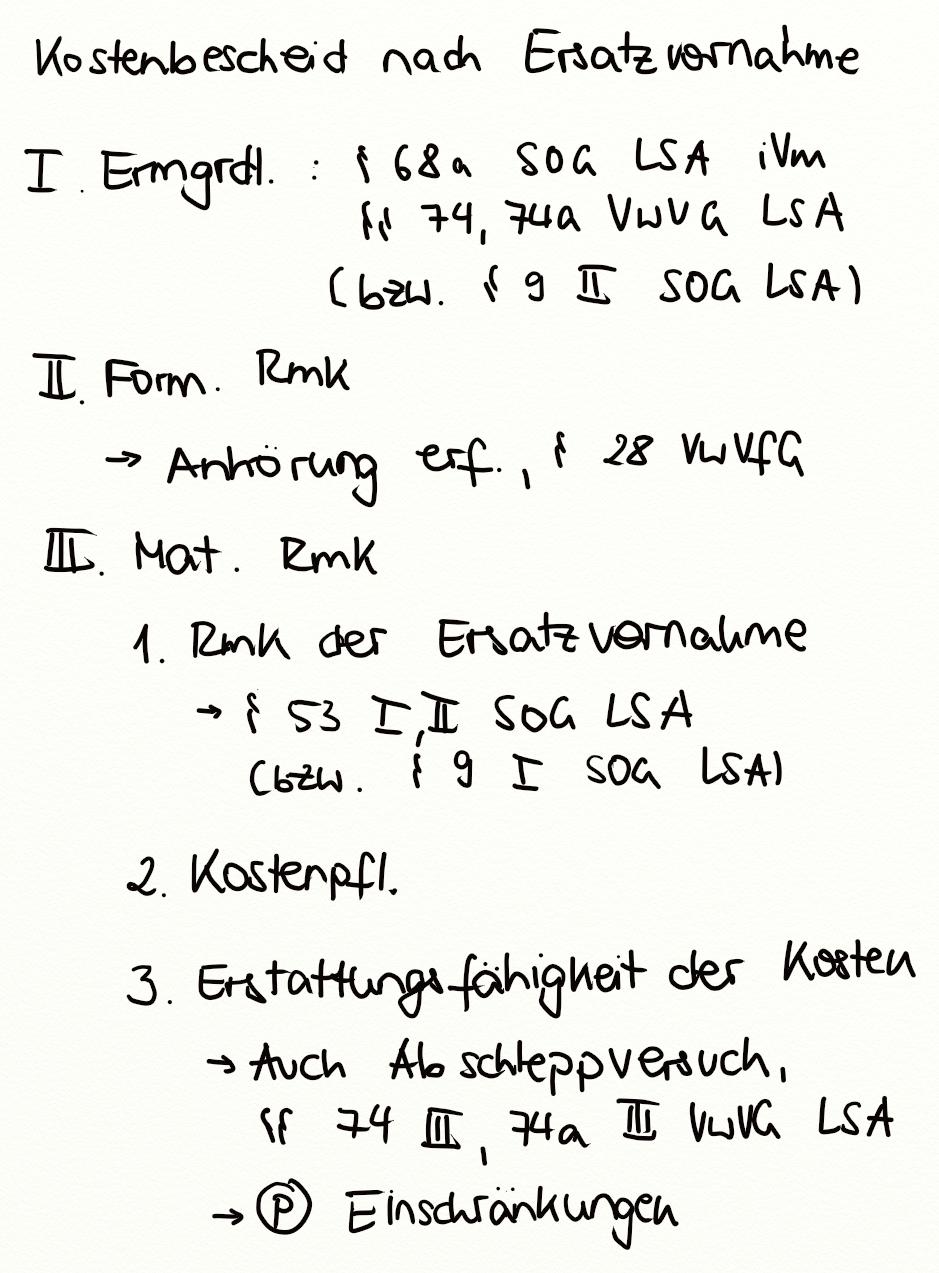 Kostenbescheid nach Ersatzvornahme
I. Ermgrdl. : § 68a SOG LSA iVm
§§ 74, 74a VwVG LSA
(bzw. § 9 II SOG LSA)
II. Form. Rmk
→ Anhörung erf., § 28 VwVfG
III. Mat. Rmk
1. Rmk der Ersatzvornahme
→ § 53 I, II SOG LSA
(bzw. § 9 I SOG LSA)
2. Kostenpfl.
3. Erstattungsfähigkeit der Kosten
→ Auch Abschleppversuch,
§§ 74 III, 74a III VwVG LSA
→ Ⓟ Einschränkungen